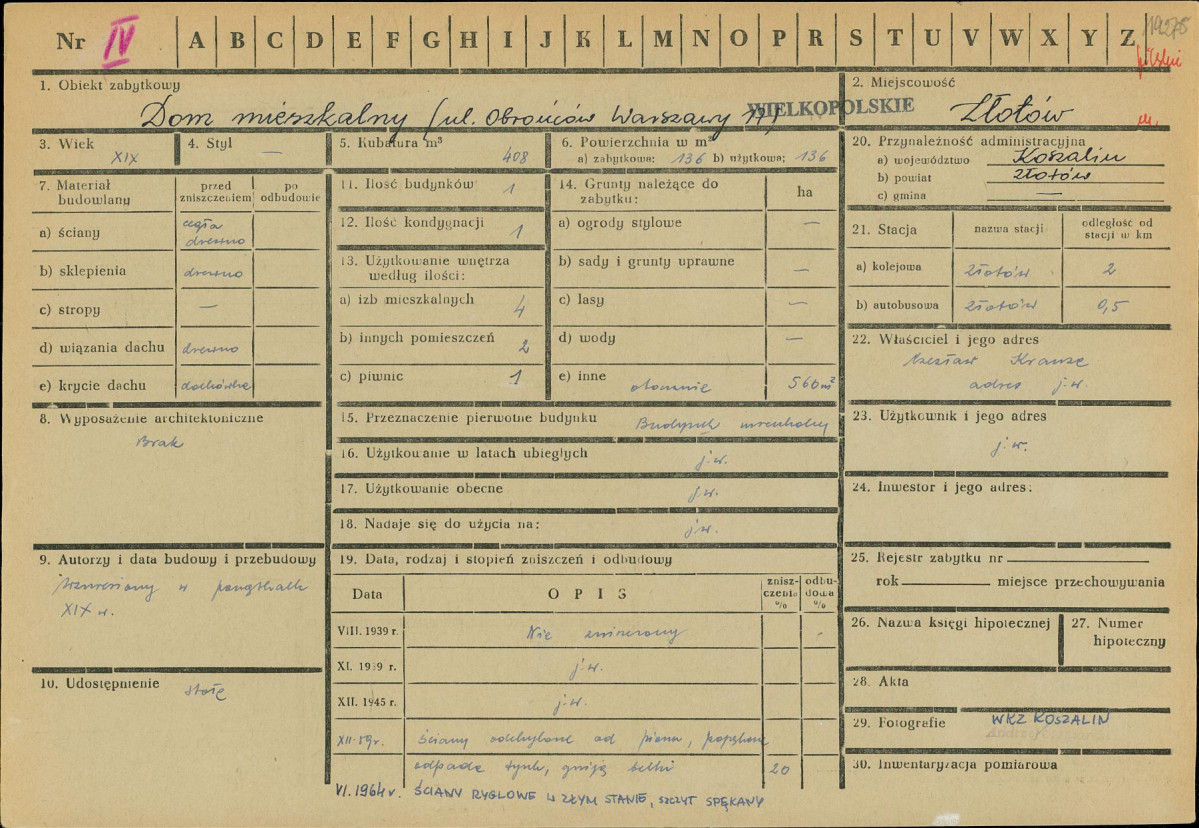 Nr IV A B C D E F G H I J K L M N O P R S T U V W X Y Z
1. Obiekt zabytkowy
Dom mieszkalny (ul. Obrońców Warszawy
WIELKOPOLSKIE
2. Miejscowość
Złotów
3. Wiek
XIX
4. Styl
—
5. Kubatura m³
408
6. Powierzchnia w m²
a) zabytkowa: 136 b) użytkowa: 136
7. Materiał budowlany
przed zniszczeniem
po odbudowie
a) ściany
cegła
drewno
b) sklepienia drewno
c) stropy —
d) wiązania dachu drewno
e) krycie dachu dachówka
8. Wyposażenie architektoniczne
Brak
9. Autorzy i data budowy i przebudowy
Wzniesiony w początkach
XIX w.
10. Udostępnienie
stałe
11. Ilość budynków 1
12. Ilość kondygnacji 1
13. Użytkowanie wnętrza
według ilości:
a) izb mieszkalnych 4
b) innych pomieszczeń 2
c) piwnic 1
14. Grunty należące do
zabytku:
ha
a) ogrody stylowe —
b) sady i grunty uprawne —
c) lasy —
d) wody —
e) inne 560 m²
15. Przeznaczenie pierwotne budynku Budynek mieszkalny
16. Użytkowanie w latach ubiegłych j.w.
17. Użytkowanie obecne j.w.
18. Nadaje się do użycia na: j.w.
19. Data, rodzaj i stopień zniszczeń i odbudowy
Data
OPIS
zniszczenia %
odbudowa %
VIII. 1939 r. Nie zniszczony
XI. 1939 r. j.w.
XII. 1945 r. j.w.
XII-59 r. ściany odchylone od pionu, popękane
odpada tynk, gniją belki 20
VI. 1964 r. ŚCIANY RYGLOWE W ZŁYM STANIE, SZCZYT SPĘKANY
20. Przynależność administracyjna
a) województwo Koszalin
b) powiat Złotów
c) gmina —
21. Stacja
nazwa stacji
odległość od
stacji w km
a) kolejowa Złotów 2
b) autobusowa Złotów 0,5
22. Właściciel i jego adres
Czesław Krauze
adres j.w.
23. Użytkownik i jego adres
j.w.
24. Inwestor i jego adres:
25. Rejestr zabytku nr
rok miejsce przechowywania
26. Nazwa księgi hipotecznej
27. Numer
hipoteczny
28. Akta
29. Fotografie WKZ KOSZALIN
30. Inwentaryzacja pomiarowa